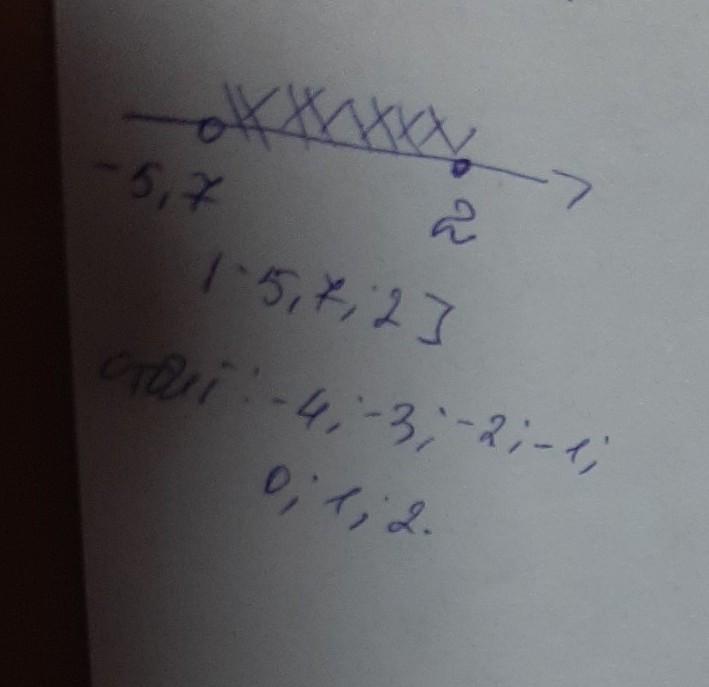 -5,7
2
(-5,7; 2]
-4; -3; -2; -1;
0; 1; 2.